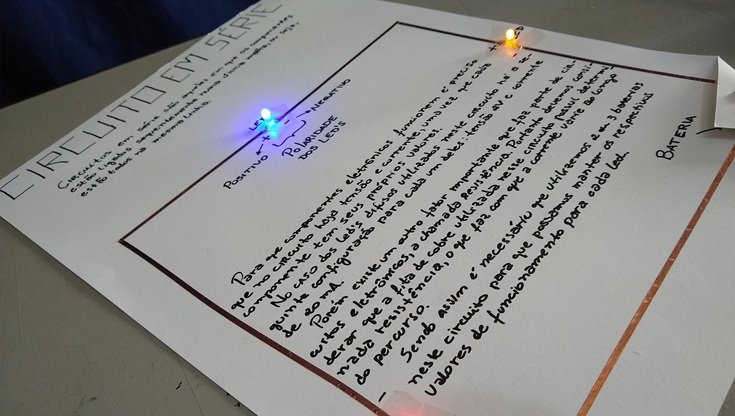 CIRCUITO EM SÉRIE
CIRCUITOS em série são aqueles em que os componentes
estão ligados sequencialmente numa única malha, ou seja,
estão todos na mesma linha.
LED
+ -
NEGATIVO
POSITIVO
POLARIDADE
DOS LED'S
LED
+
Para que componentes eletrônicos funcionem é preciso
que no circuito haja tensão e corrente, uma vez que cada
componente tem seus próprios valores.
No caso dos led's difusos utilizados neste circuito há a se-
guinte configuração para cada um deles: tensão 2V e corrente
de 20 mA.
Porém existe um outro fator importante que faz parte de cir-
cuitos eletrônicos, a chamada resistência. Portanto devemos consi-
derar que a fita de cobre utilizada nesse circuito possui determi-
nada resistência, o que faz com que a corrente varie ao longo
do percurso.
- Sendo assim é necessário que utilizemos 2 ou 3 baterias
neste circuito para que possamos manter os respectivos
valores de funcionamento para cada led.
BATERIA